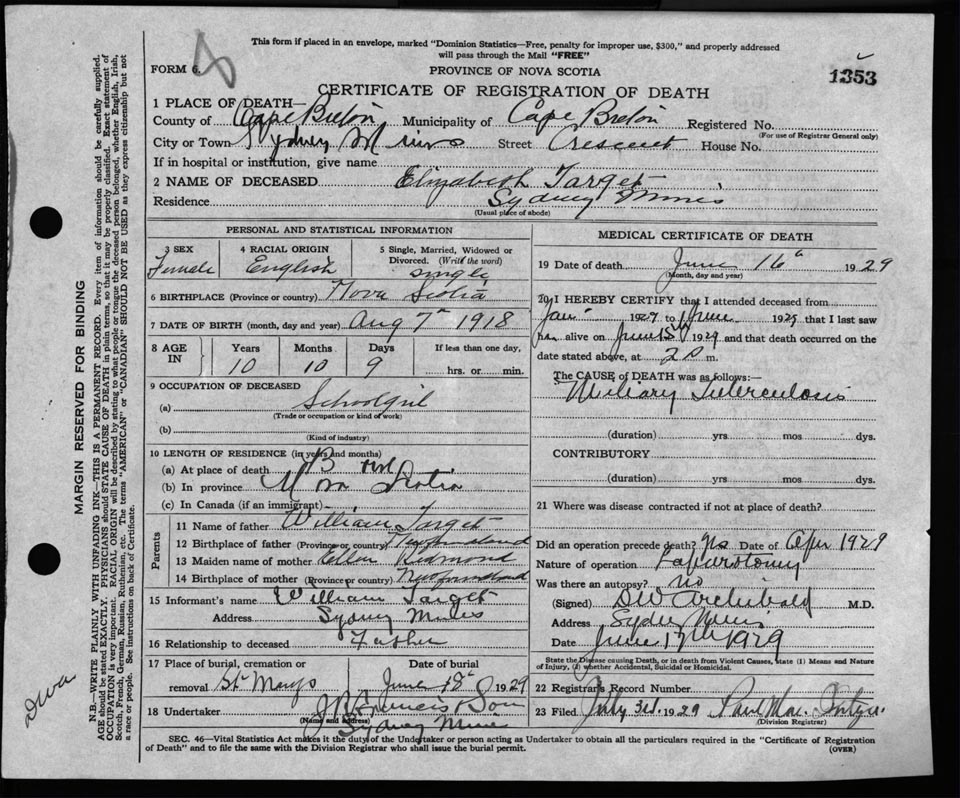 This form if placed in an envelope, marked "Dominion Statistics—Free, penalty for improper use, $300," and properly addressed
will pass through the Mail "FREE"
FORM 6.
PROVINCE OF NOVA SCOTIA
1353
CERTIFICATE OF REGISTRATION OF DEATH
1 PLACE OF DEATH—
County of Cape Breton Municipality of Cape Breton Registered No.
(For use of Registrar General only)
City or Town Sydney Mines Street Crescent House No.
If in hospital or institution, give name
2 NAME OF DECEASED Elizabeth Target
Residence Sydney Mines
(Usual place of abode)
PERSONAL AND STATISTICAL INFORMATION
3 SEX Female
4 RACIAL ORIGIN English
5 Single, Married, Widowed or Divorced. (Write the word) single
6 BIRTHPLACE (Province or country) Nova Scotia
7 DATE OF BIRTH (month, day and year) Aug 7th 1918
8 AGE IN Years Months Days If less than one day,
10 10 9 hrs. or min.
9 OCCUPATION OF DECEASED
(a) Schoolgirl
(Trade or occupation or kind of work)
(b)
(Kind of industry)
10 LENGTH OF RESIDENCE (in years and months)
(a) At place of death
(b) In province Nova Scotia
(c) In Canada (if an immigrant)
Parents
11 Name of father William Target
12 Birthplace of father (Province or country) Newfoundland
13 Maiden name of mother Ellen Redmond
14 Birthplace of mother (Province or country) Newfoundland
15 Informant's name William Target
Address Sydney Mines
16 Relationship to deceased Father
17 Place of burial, cremation or Date of burial
removal St Marys June 18th 1929
18 Undertaker Francis & Son
(Name and address)
Sydney Mines
MEDICAL CERTIFICATE OF DEATH
19 Date of death June 16th 1929
(Month, day and year)
20 I HEREBY CERTIFY that I attended deceased from
Jan 1929 to June 1929 that I last saw
her alive on June 15th 1929 and that death occurred on the
date stated above, at 2 m.
The CAUSE OF DEATH was as follows:—
Miliary Tuberculosis
(duration) yrs mos dys.
CONTRIBUTORY
(duration) yrs mos dys.
21 Where was disease contracted if not at place of death?
Did an operation precede death? Yes Date of Apr 1929
Nature of operation Laparotomy
Was there an autopsy? no
(Signed) DW Archibald M.D.
Address Sydney Mines
Date June 17th 1929
State the Disease causing Death, or in death from Violent Causes, state (1) Means and Nature
of Injury, (2) whether Accidental, Suicidal or Homicidal.
22 Registrar's Record Number
23 Filed July 3rd 1929
(Division Registrar)
SEC. 46—Vital Statistics Act makes it the duty of the Undertaker or person acting as Undertaker to obtain all the particulars required in the "Certificate of Registration
of Death" and to file the same with the Division Registrar who shall issue the burial permit.
(OVER)
MARGIN RESERVED FOR BINDING
N.B.—WRITE PLAINLY WITH UNFADING INK—THIS IS A PERMANENT RECORD. Every item of information should be carefully supplied.
AGE should be stated EXACTLY. PHYSICIANS should STATE CAUSE OF DEATH in plain terms, so that it may be properly classified. Exact statement of
OCCUPATION is very important. RACIAL ORIGIN will be described by stating to what people or tongue the deceased person belonged, whether English, Irish,
Scotch, French, German, Russian, Ruthenian, etc. The terms "AMERICAN" or "CANADIAN" SHOULD NOT BE USED as they express citizenship but not
a race or people. See instructions on back of Certificate.